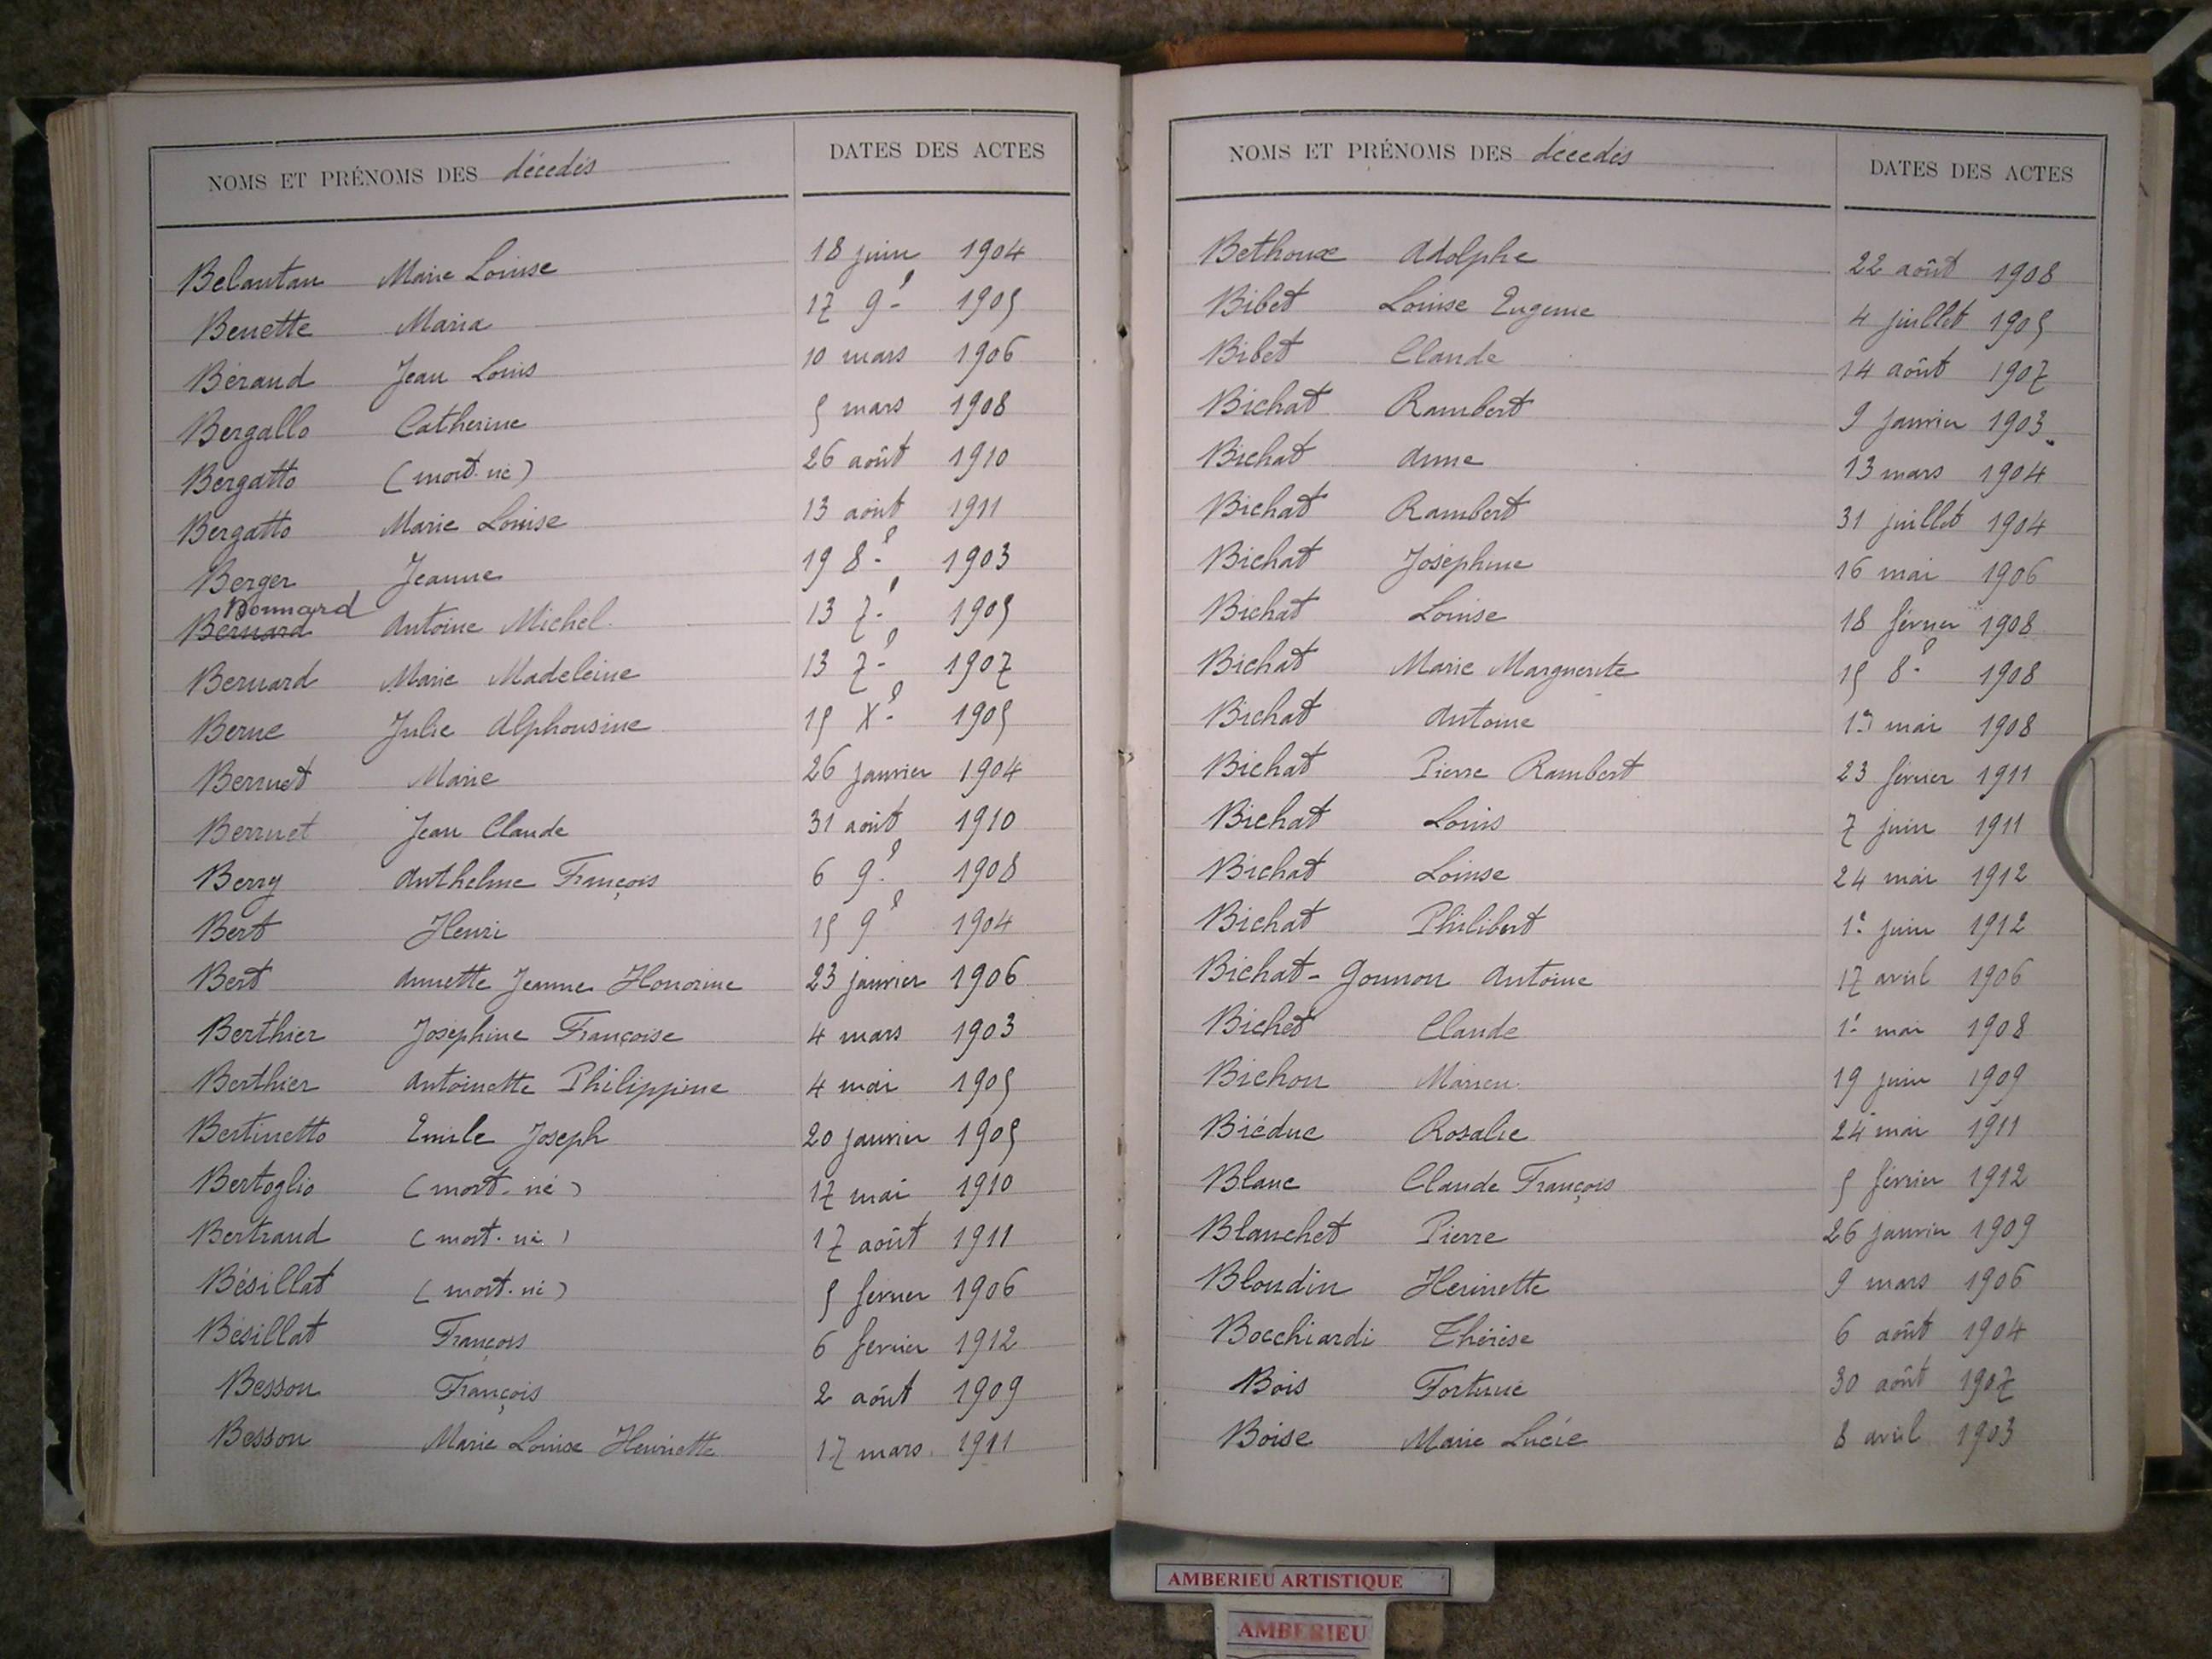 NOMS ET PRÉNOMS DES décédés DATES DES ACTES
Belantan Marie Louise 18 juin 1904
Benette Maria 17 9e 1905
Béraud Jean Louis 10 mars 1906
Bergallo Catherine 5 mars 1908
Bergatto (mort-né) 26 août 1910
Bergatto Marie Louise 13 août 1911
Berger Jeanne 19 8e 1903
Bonnard
Bernard Antoine Michel 13 7e 1905
Bernard Marie Madeleine 13 7e 1907
Berne Julie Alphonsine 15 Xe 1905
Berruet Marie 26 janvier 1904
Berruet Jean Claude 31 août 1910
Berry Anthelme François 6 9e 1908
Bert Henri 15 9e 1904
Bert Annette Jeanne Honorine 23 janvier 1906
Berthier Joséphine Françoise 4 mars 1903
Berthier Antoinette Philippine 4 mai 1905
Bertinetto Emile Joseph 20 janvier 1905
Bertoglio (mort-né) 17 mai 1910
Bertrand (mort-né) 17 août 1911
Bésillat (mort-né) 5 février 1906
Bésillat François 6 février 1912
Besson François 2 août 1909
Besson Marie Louise Henriette 17 mars 1911
NOMS ET PRÉNOMS DES décédés DATES DES ACTES
Bethoux Adolphe 22 août 1908
Bibet Louise Eugenie 4 juillet 1905
Bibet Claude 14 août 1907
Bichat Rambert 9 janvier 1903
Bichat Anne 13 mars 1904
Bichat Rambert 31 juillet 1904
Bichat Joséphine 16 mai 1906
Bichat Louise 18 février 1908
Bichat Marie Marguerite 15 8e 1908
Bichat Antoine mai 1908
Bichat Pierre Rambert 23 février 1911
Bichat Louis 7 juin 1911
Bichat Louise 24 mai 1912
Bichat Philibert 1e juin 1912
Bichat-Gounon Antoine 17 avril 1906
Bichet Claude 1e mai 1908
Bichon 19 juin 1909
Biéduc Rosalie 24 mai 1911
Blanc Claude François 5 février 1912
Blanchet Pierre 26 janvier 1909
Blondin Henriette 9 mars 1906
Bocchiardi Thérèse 6 août 1904
Bois Fortuné 30 août 1907
Boise Marie Lucie 8 avril 1903
AMBERIEU ARTISTIQUE
AMBERIEU